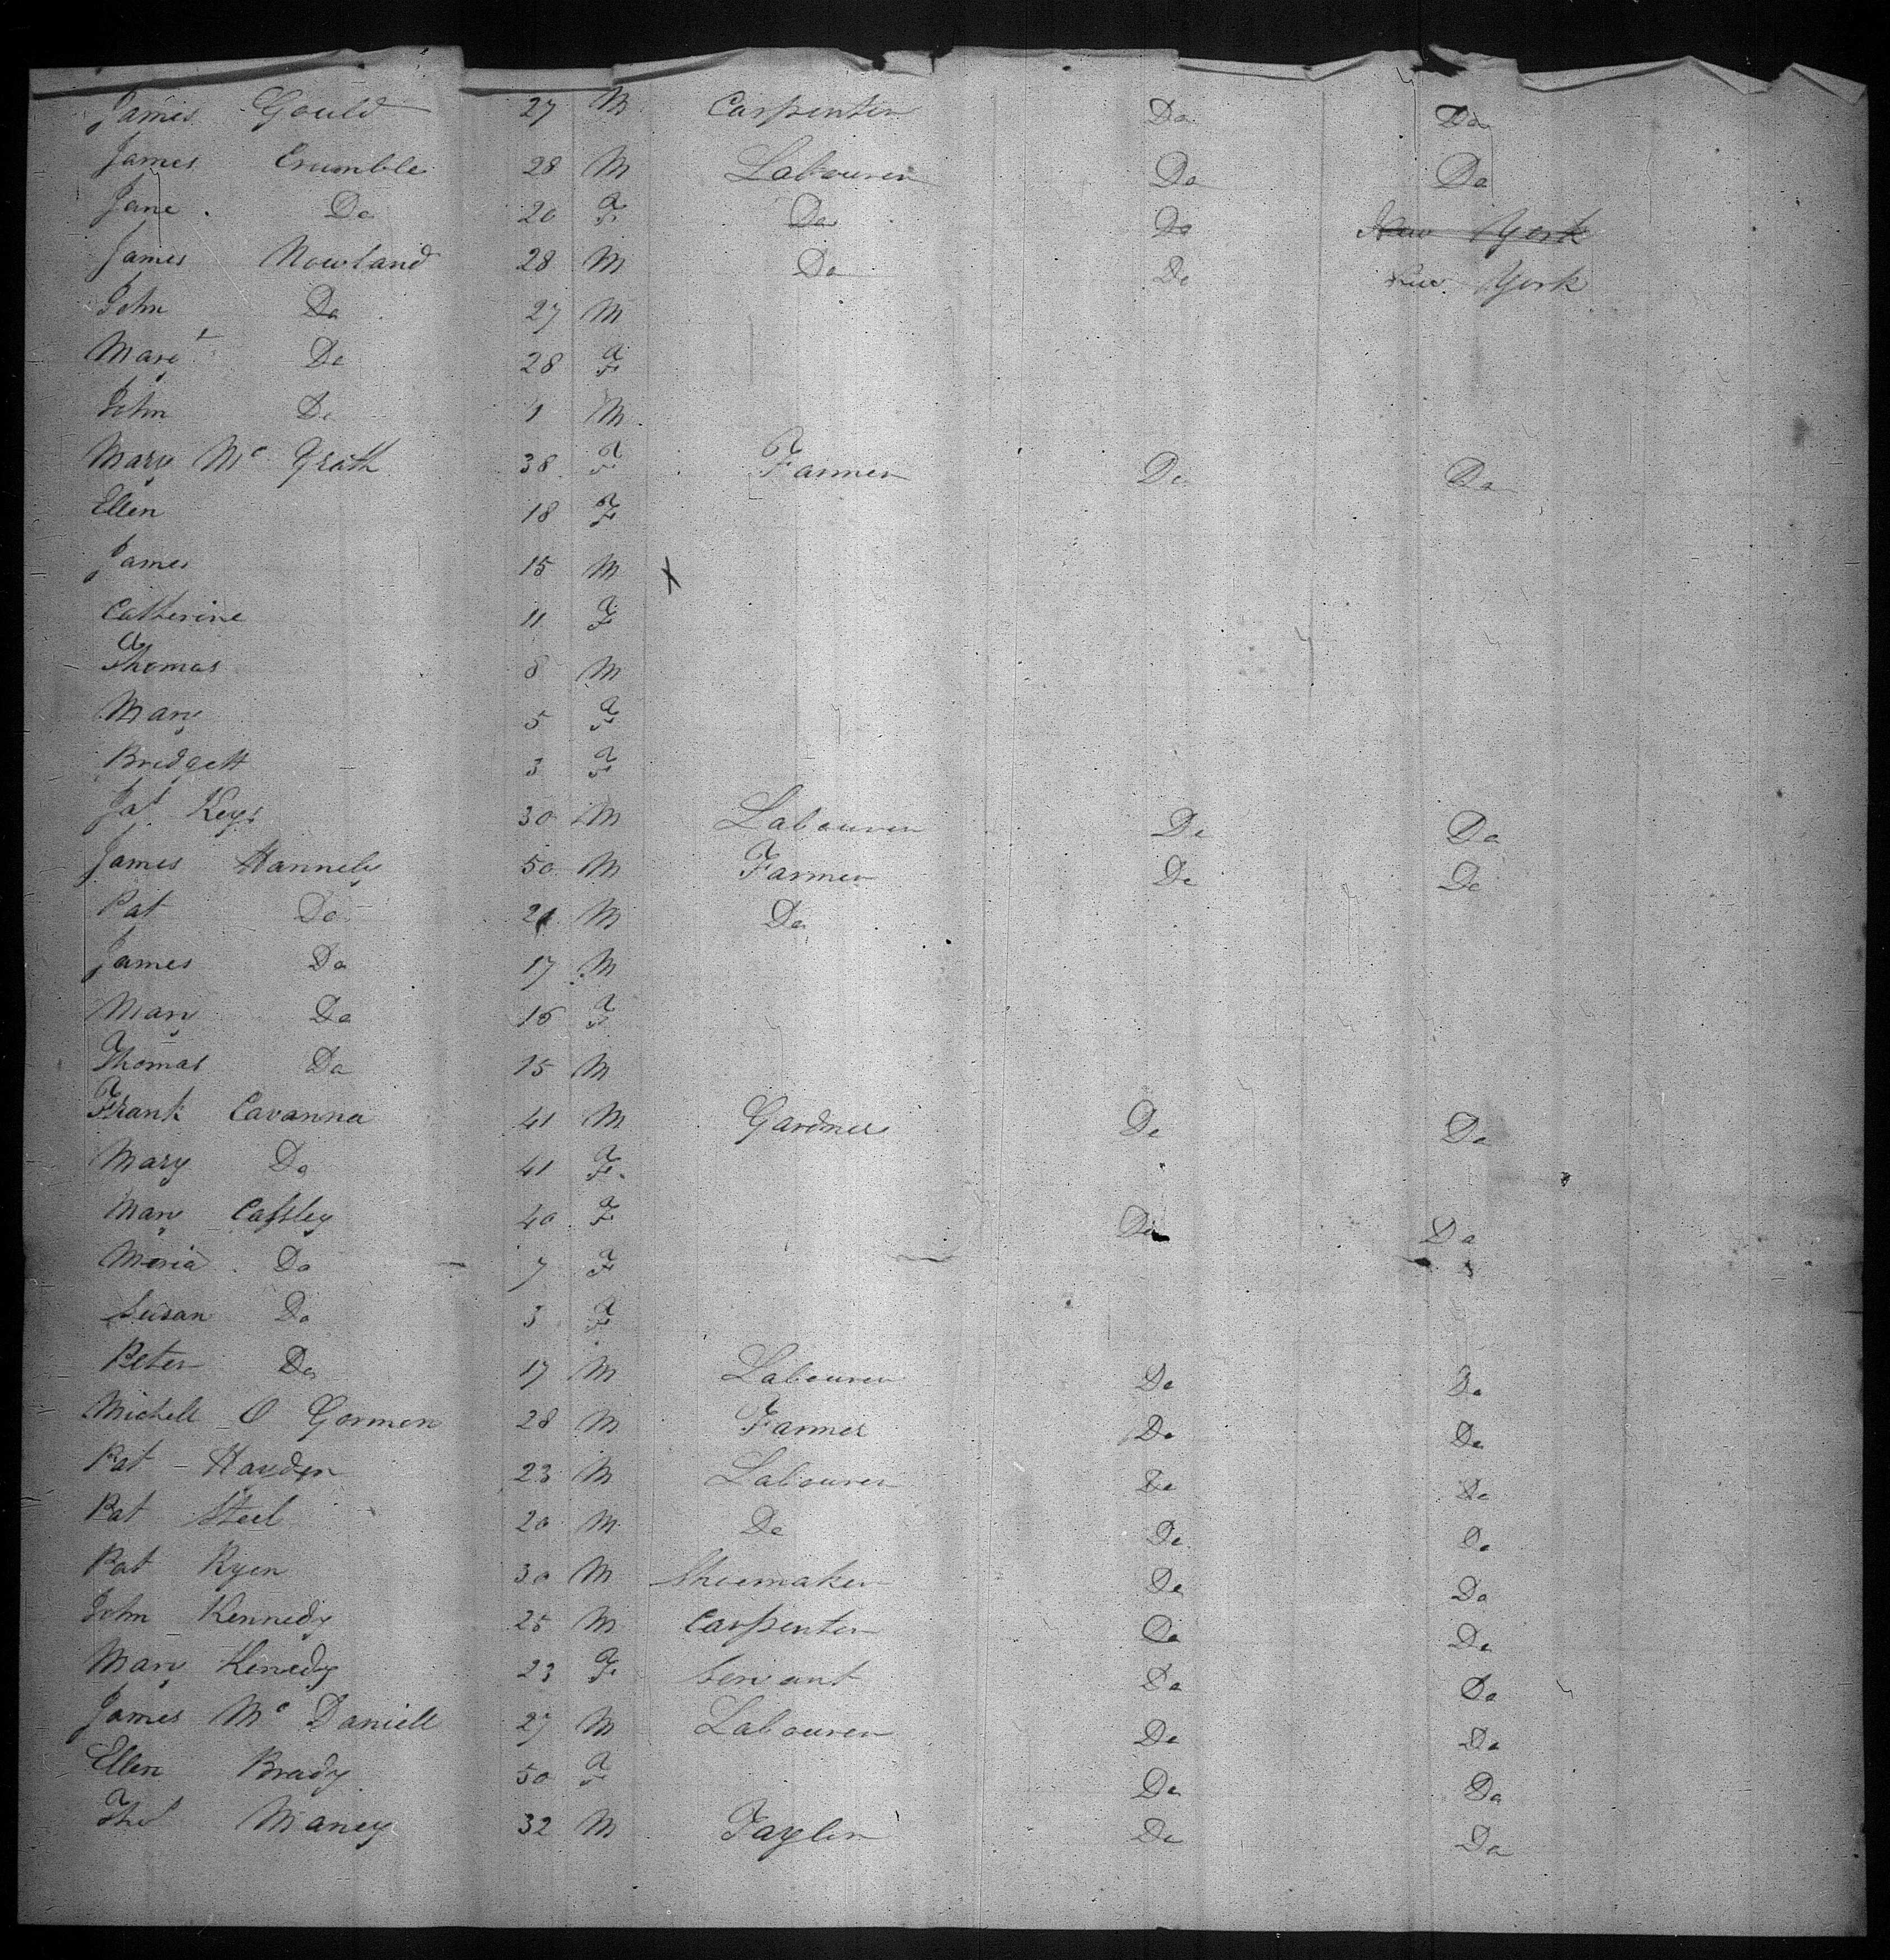 James Gould 27 M Carpenter Do Do
James Crumble 28 M Labourer Do Do
Jane Do 20 F Do Do New York
James Nowland 28 M Do Do New York
John Do 27 M
Margt Do 28 F
John Do 1 M
Mary Mc Grath 38 F Farmer Do Do
Ellen 18 F
James 15 M X
Catherine 11 F
Thomas 8 M
Mary 5 F
Bridgett 3 F
Keys 30 M Labourer Do Do
James Hannely 50 M Farmer Do Do
Pat Do 21 M Do
James Do 17 M
Mary Do 16 F
Thomas Do 15 M
Frank Cavanna 41 M Gardner Do Do
Mary Do 41 F
Mary Cassley 40 F Do Do
Moria Do 7 F
Susan Do 3 F
Peter Do 17 M Labourer Do Do
Michell O Gormon 28 M Farmer Do Do
Pat Hayden 23 M Labourer Do Do
Pat Steel 20 M Do Do Do
Pat Ryen 30 M Shoemaker Do Do
John Kennedy 25 M Carpenter Do Do
Mary Kenedy 23 F Servant Do Do
James Mc Daniell 27 M Labourer Do Do
Ellen Brady 50 F Do Do
Thos Maney 32 M Taylor Do Do